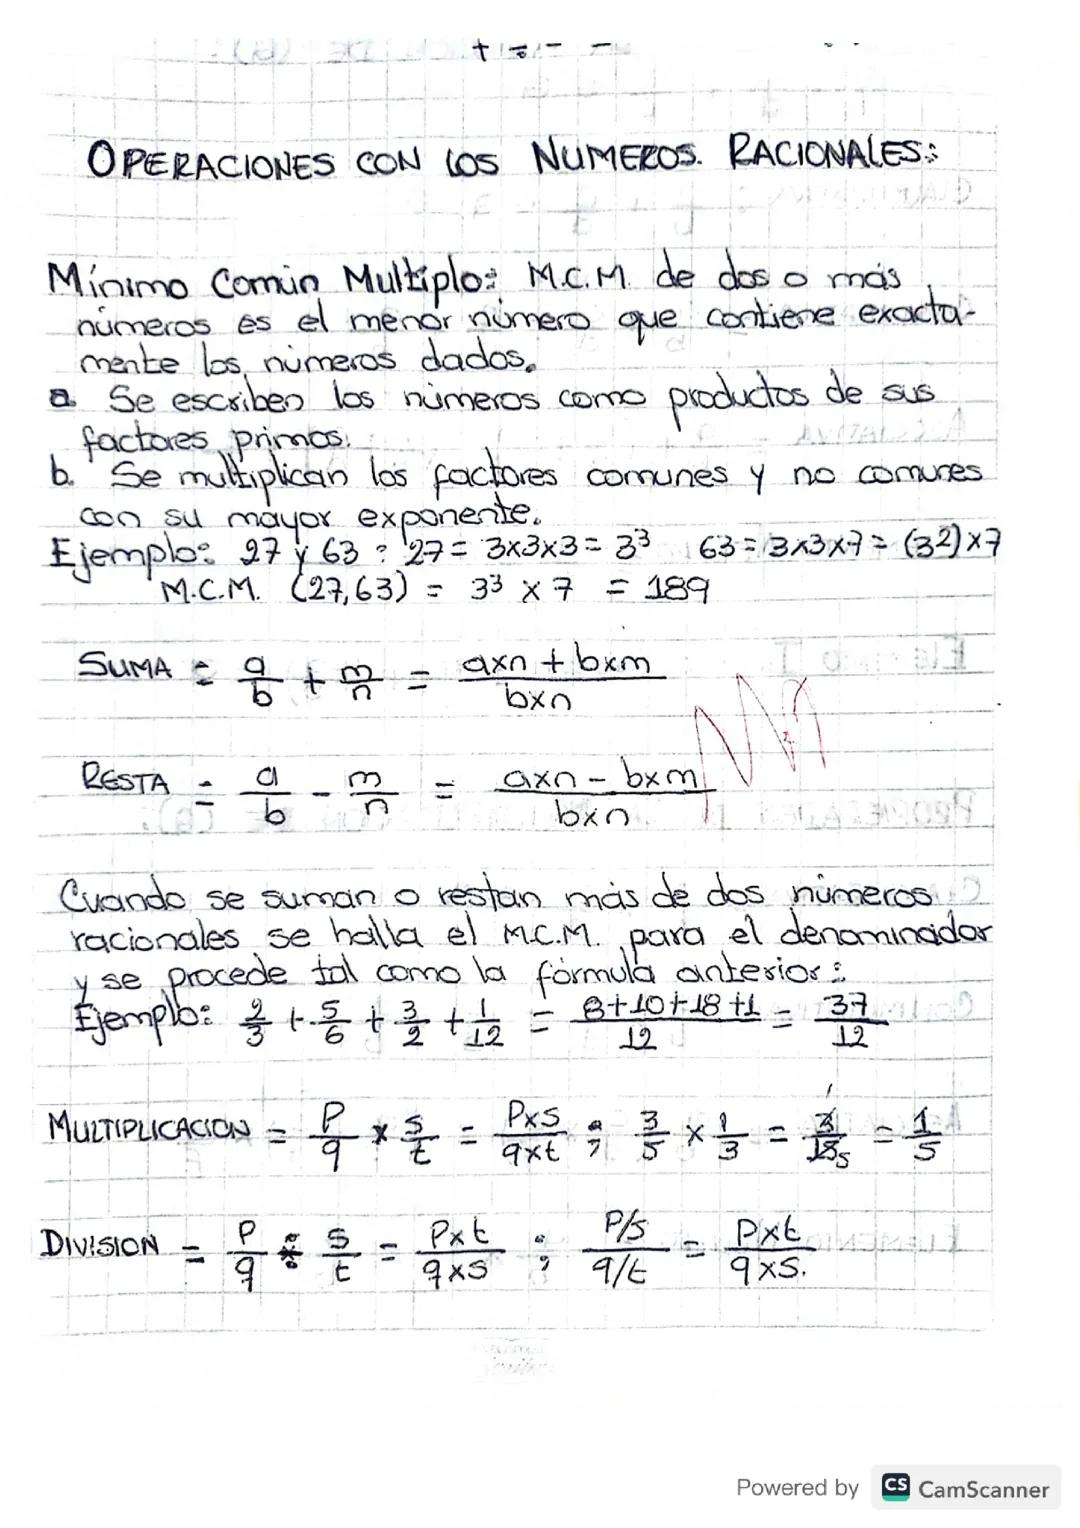 OPERACIONES CON LOS NUMEROS. RACIONALES:
Mínimo Común Multiplo: M.C.M. de dos o más
números es el menor número que contiene exacta-
mente los números dados.
a. Se escriben los números como productos de sus
factores primos.
b. Se multiplican los factores comunes y no comunes
con su mayor exponente.
Ejemplo: 27 y 63 : 27 = 3x3x3 = 3³ 63 = 3x3x7 = (3²)x7
M.C.M. (27,63) = 3³ x 7 = 189
SUMA = a/b + m/n = (axn + bxm)/(bxn)
RESTA = a/b - m/n = (axn - bxm)/(bxn)
Cuando se suman o restan más de dos números
racionales se halla el M.C.M. para el denominador
y se procede tal como la fórmula anterior:
Ejemplo: 2/3 + 5/6 + 3/2 + 1/12 = (8+10+18+1)/12 = 37/12
MULTIPLICACION = P/q x s/t = (Pxs)/(qxt) ; 3/5 x 1/3 = 3/15 = 1/5
DIVISION = P/q ÷ s/t = (Pxt)/(qxs) ; (P/s)/(q/t) = (Pxt)/(qxs).
Powered by CS CamScanner